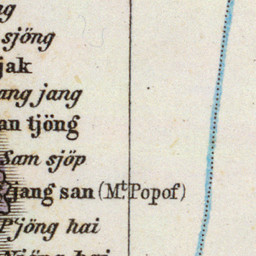 sjöng
jak
ang jang
an tjöng
Sam sjöp
jang san (Mt. Popof)
P'jöng hai
hai